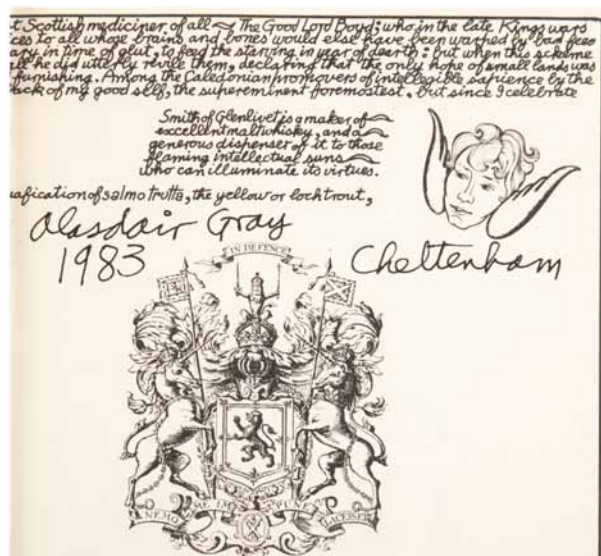 t Scottish mediciner of all The Good Lord Boyd; who in the late Kings wars
ces to all whose brains and bones would else have been warped by bad feeo
ary in time of glut, to feed the starving in year of dearth: but when this sckeme
ll he did utterly revile them, declaring that the only hope of small lands was
furnishing. Among the Caledonian promovers of intellegible sapience by the
ack of my good self, the supereminent foremostest, but since I celebrate
Smith of Glenlivet is a maker of
excellent malt whiskey, and a
generous dispenser of it to those
flaming intellectual suns
who can illuminate its virtues.
afication of salmo trutta, the yellow or loch trout,
Alasdair Gray
1983 Cheltenham
IN DEFENCE
NEMO ME IMPUNE LACESSET